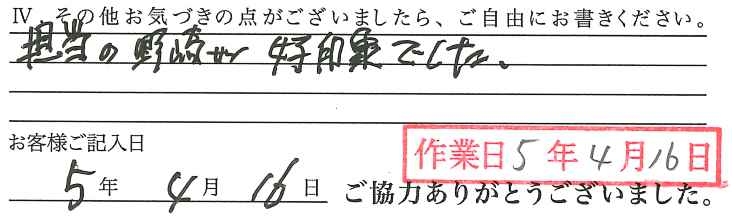 Ⅳ その他お気づきの点がございましたら、ご自由にお書きください。
担当の野崎さん 好印象でした。
お客様ご記入日
作業日 5年4月16日
5年 4月 16日 ご協力ありがとうございました。